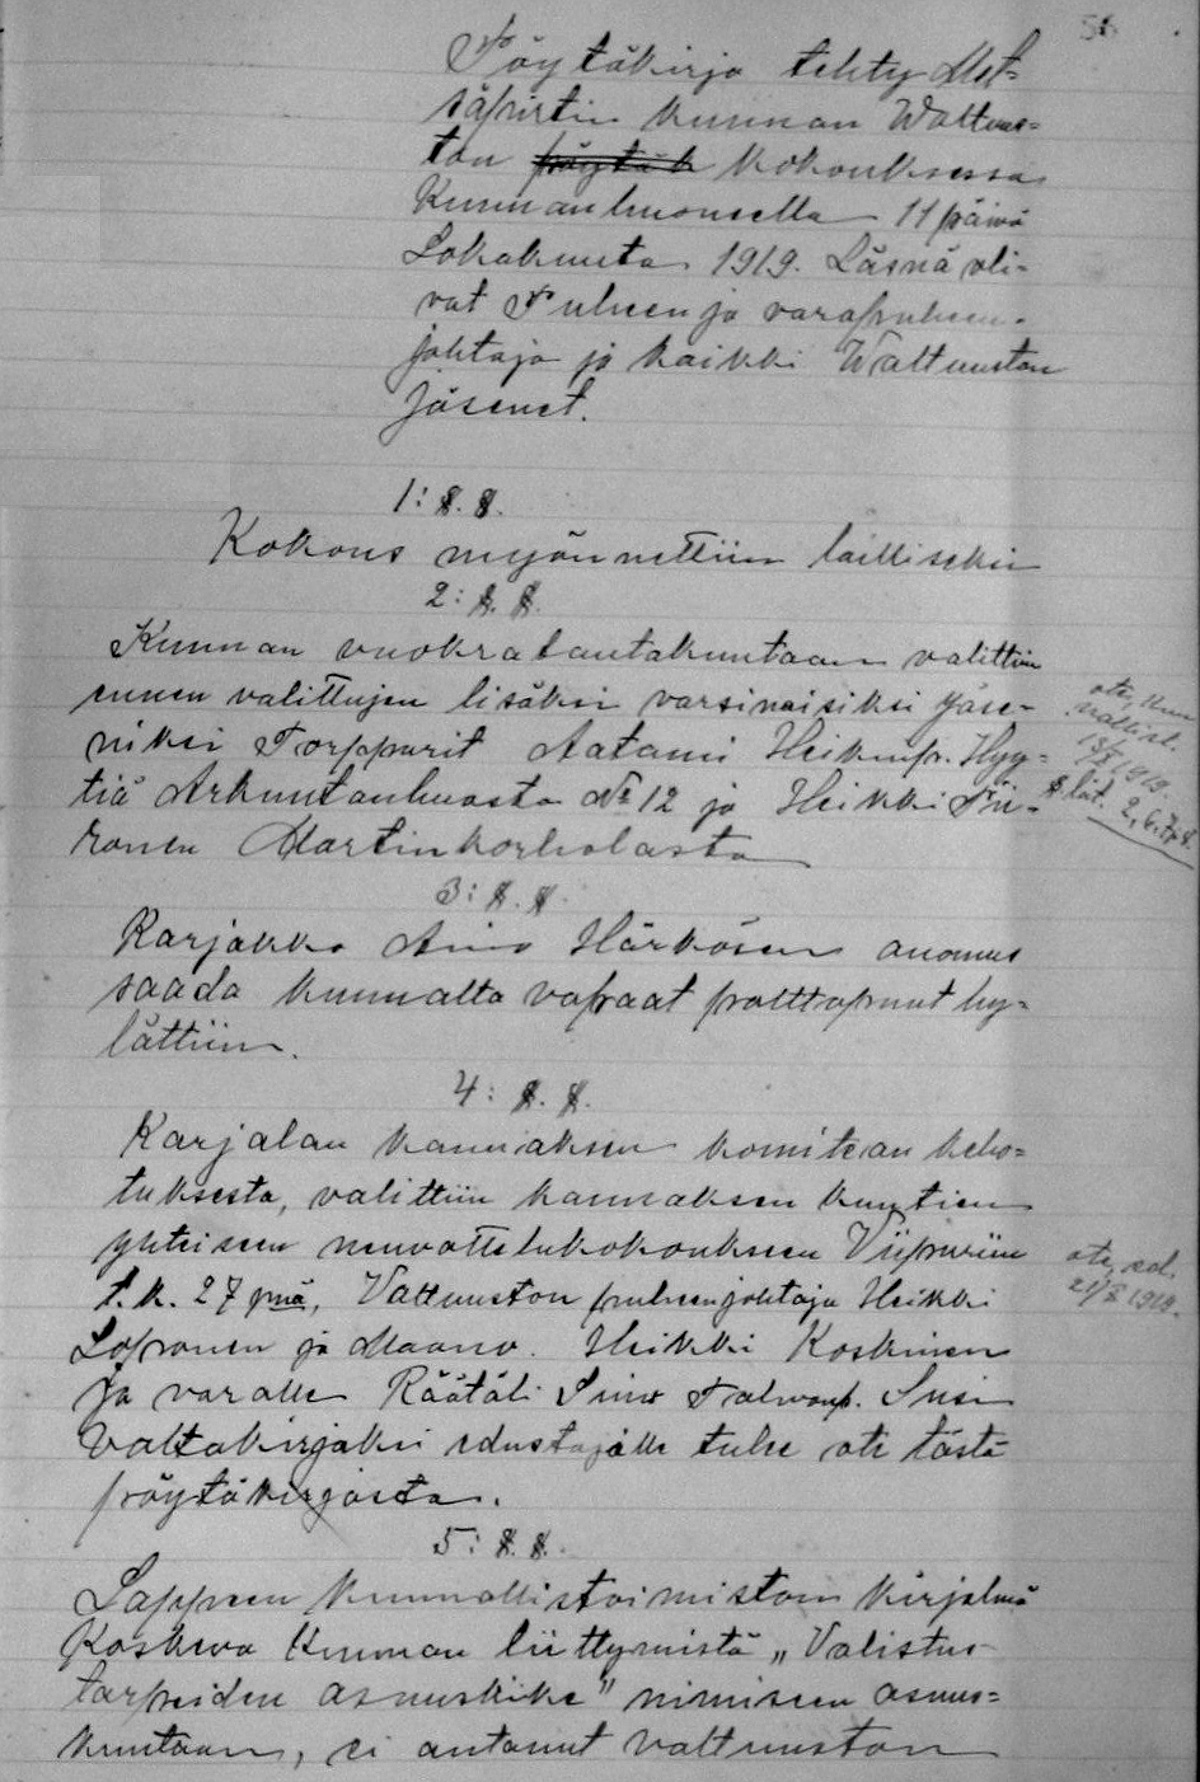 Pöytäkirja tehty Met=
säpirtin kunnan Waltuus=
ton pöytäk kokouksessa
Kunnanhuoneella 11 päivä
Lokakuuta 1919. Läsnä oli=
vat Puheen ja varapuheen=
johtaja ja kaikki Waltuuston
jäsenet.
1: §. §.
Kokous myönnettiin lailliseksi
2: §. §.
Kunnan vuokralautakuntaan valittiin
ennen valittujen lisäksi varsinaisiksi jäse=
niksi Torpparit Aatami Heikinp. Hyy=
tiä Arkuntanhuasta № 12 ja Heikki Pii=
ronen Martinkorholasta
3: §. §.
Karjakko Aino Härkösen anomus
saada kunnalta vapaat polttopuut hy=
lättiin.
4: §. §.
Karjalan kannaksen komitean keho=
tuksesta, valittiin kannaksen kuntien
yhteiseen neuvottelukokoukseen Viipuriin
t.k. 27 pnä, Valtuuston puheenjohtaja Heikki
Loponen ja Maanv. Heikki Koskinen
ja varalle Räätäli Simo Pahvonp. Susi
Valtakirjaksi edustajille tulee ote tästä
pöytäkirjasta.
5: §. §.
Lappeen kunnallistoimiston kirjelmä
Koskeva Kunnan liittymistä „Valistus
tarpeiden osuusliike" nimiseen osuus=
kuntaan, ei antanut valtuuston
ote, Kun
nallisl.
13/X 1919.
§ lät. 2, 6, 7, 8.
ote, ed.
21/X 1919.